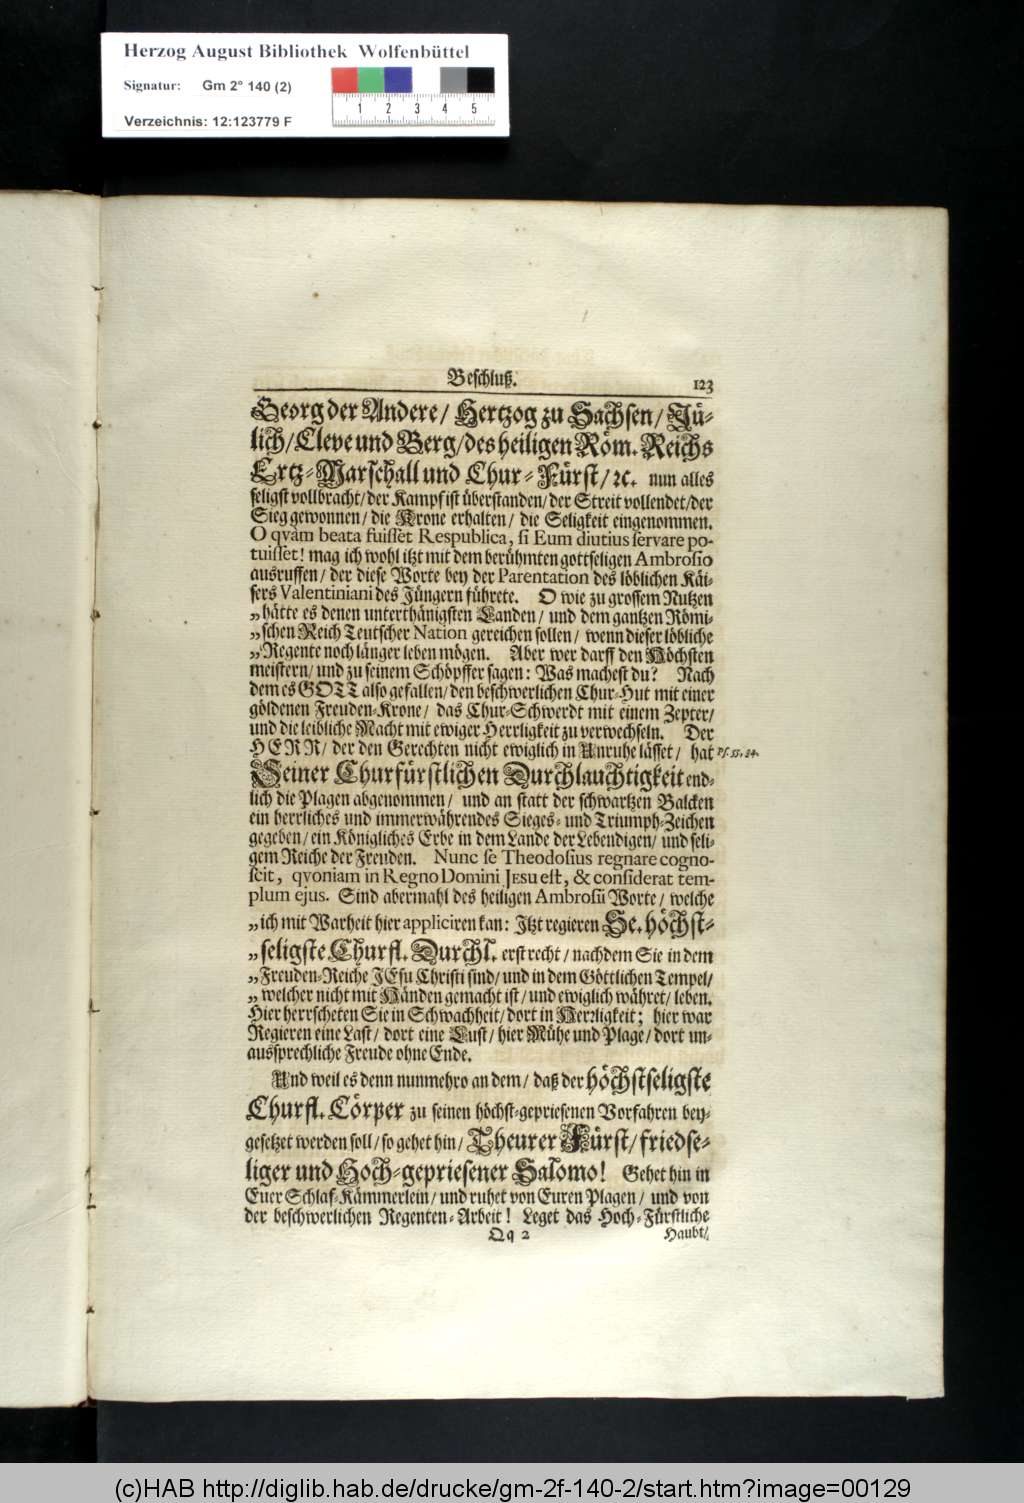 Herzog August Bibliothek Wolfenbüttel
Signatur: Gm 2° 140 (2)
1 2 3 4 5
Verzeichnis: 12:123779 F
Beschluß. 123
Georg der Andere/ Hertzog zu Sachsen/ Jü-
lich/ Cleve und Berg/ des heiligen Röm. Reichs
Ertz-Marschall und Chur-Fürst/ ꝛc. nun alles
seligst vollbracht/ der Kampf ist überstanden/ der Streit vollendet/ der
Sieg gewonnen/ die Krone erhalten/ die Seligkeit eingenommen.
O qvàm beata fuisset Respublica, si Eum diutius servare po-
tuisset! mag ich wohl itzt mit dem berühmten gottseligen Ambrosio
ausruffen/ der diese Worte bey der Parentation des löblichen Käi-
sers Valentiniani des Jüngern führete. O wie zu grossem Nutzen
„hätte es denen unterthänigsten Landen/ und dem gantzen Römi-
„schen Reich Teutscher Nation gereichen sollen/ wenn dieser löbliche
„Regente noch länger leben mögen. Aber wer darff den Höchsten
meistern/ und zu seinem Schöpffer sagen: Was machest du? Nach
dem es GOTT also gefallen/ den beschwerlichen Chur-Hut mit einer
göldenen Freuden-Krone/ das Chur-Schwerdt mit einem Zepter/
und die leibliche Macht mit ewiger Herrligkeit zu verwechseln. Der
HERR/ der den Gerechten nicht ewiglich in Unruhe lässet/ hat Ps. 55, 24.
Seiner Churfürstlichen Durchlauchtigkeit end-
lich die Plagen abgenommen/ und an statt der schwartzen Balcken
ein herrliches und immerwährendes Sieges- und Triumph-Zeichen
gegeben/ ein Königliches Erbe in dem Lande der Lebendigen/ und seli-
gem Reiche der Freuden. Nunc se Theodosius regnare cogno-
scit, qvoniam in Regno Domini JESU est, & considerat tem-
plum ejus. Sind abermahl des heiligen Ambrosii Worte/ welche
„ich mit Warheit hier appliciren kan: Itzt regieren Se. höchst-
„seligste Churfl. Durchl. erst recht/ nachdem Sie in dem
„Freuden-Reiche JEsu Christi sind/ und in dem Göttlichen Tempel/
„welcher nicht mit Händen gemacht ist/ und ewiglich währet/ leben.
Hier herrscheten Sie in Schwachheit/ dort in Herrligkeit; hier war
Regieren eine Last/ dort eine Lust/ hier Mühe und Plage/ dort un-
aussprechliche Freude ohne Ende.
Und weil es denn nunmehro an dem/ daß der höchstseligste
Churfl. Cörper zu seinen höchst-gepriesenen Vorfahren bey-
gesetzet werden soll/ so gehet hin/ Theurer Fürst/ friedse-
liger und Hoch-gepriesener Salomo! Gehet hin in
Euer Schlaf-Kämmerlein/ und ruhet von Euren Plagen/ und von
der beschwerlichen Regenten-Arbeit! Leget das Hoch-Fürstliche
Qq 2 Haubt/
(c)HAB http://diglib.hab.de/drucke/gm-2f-140-2/start.htm?image=00129